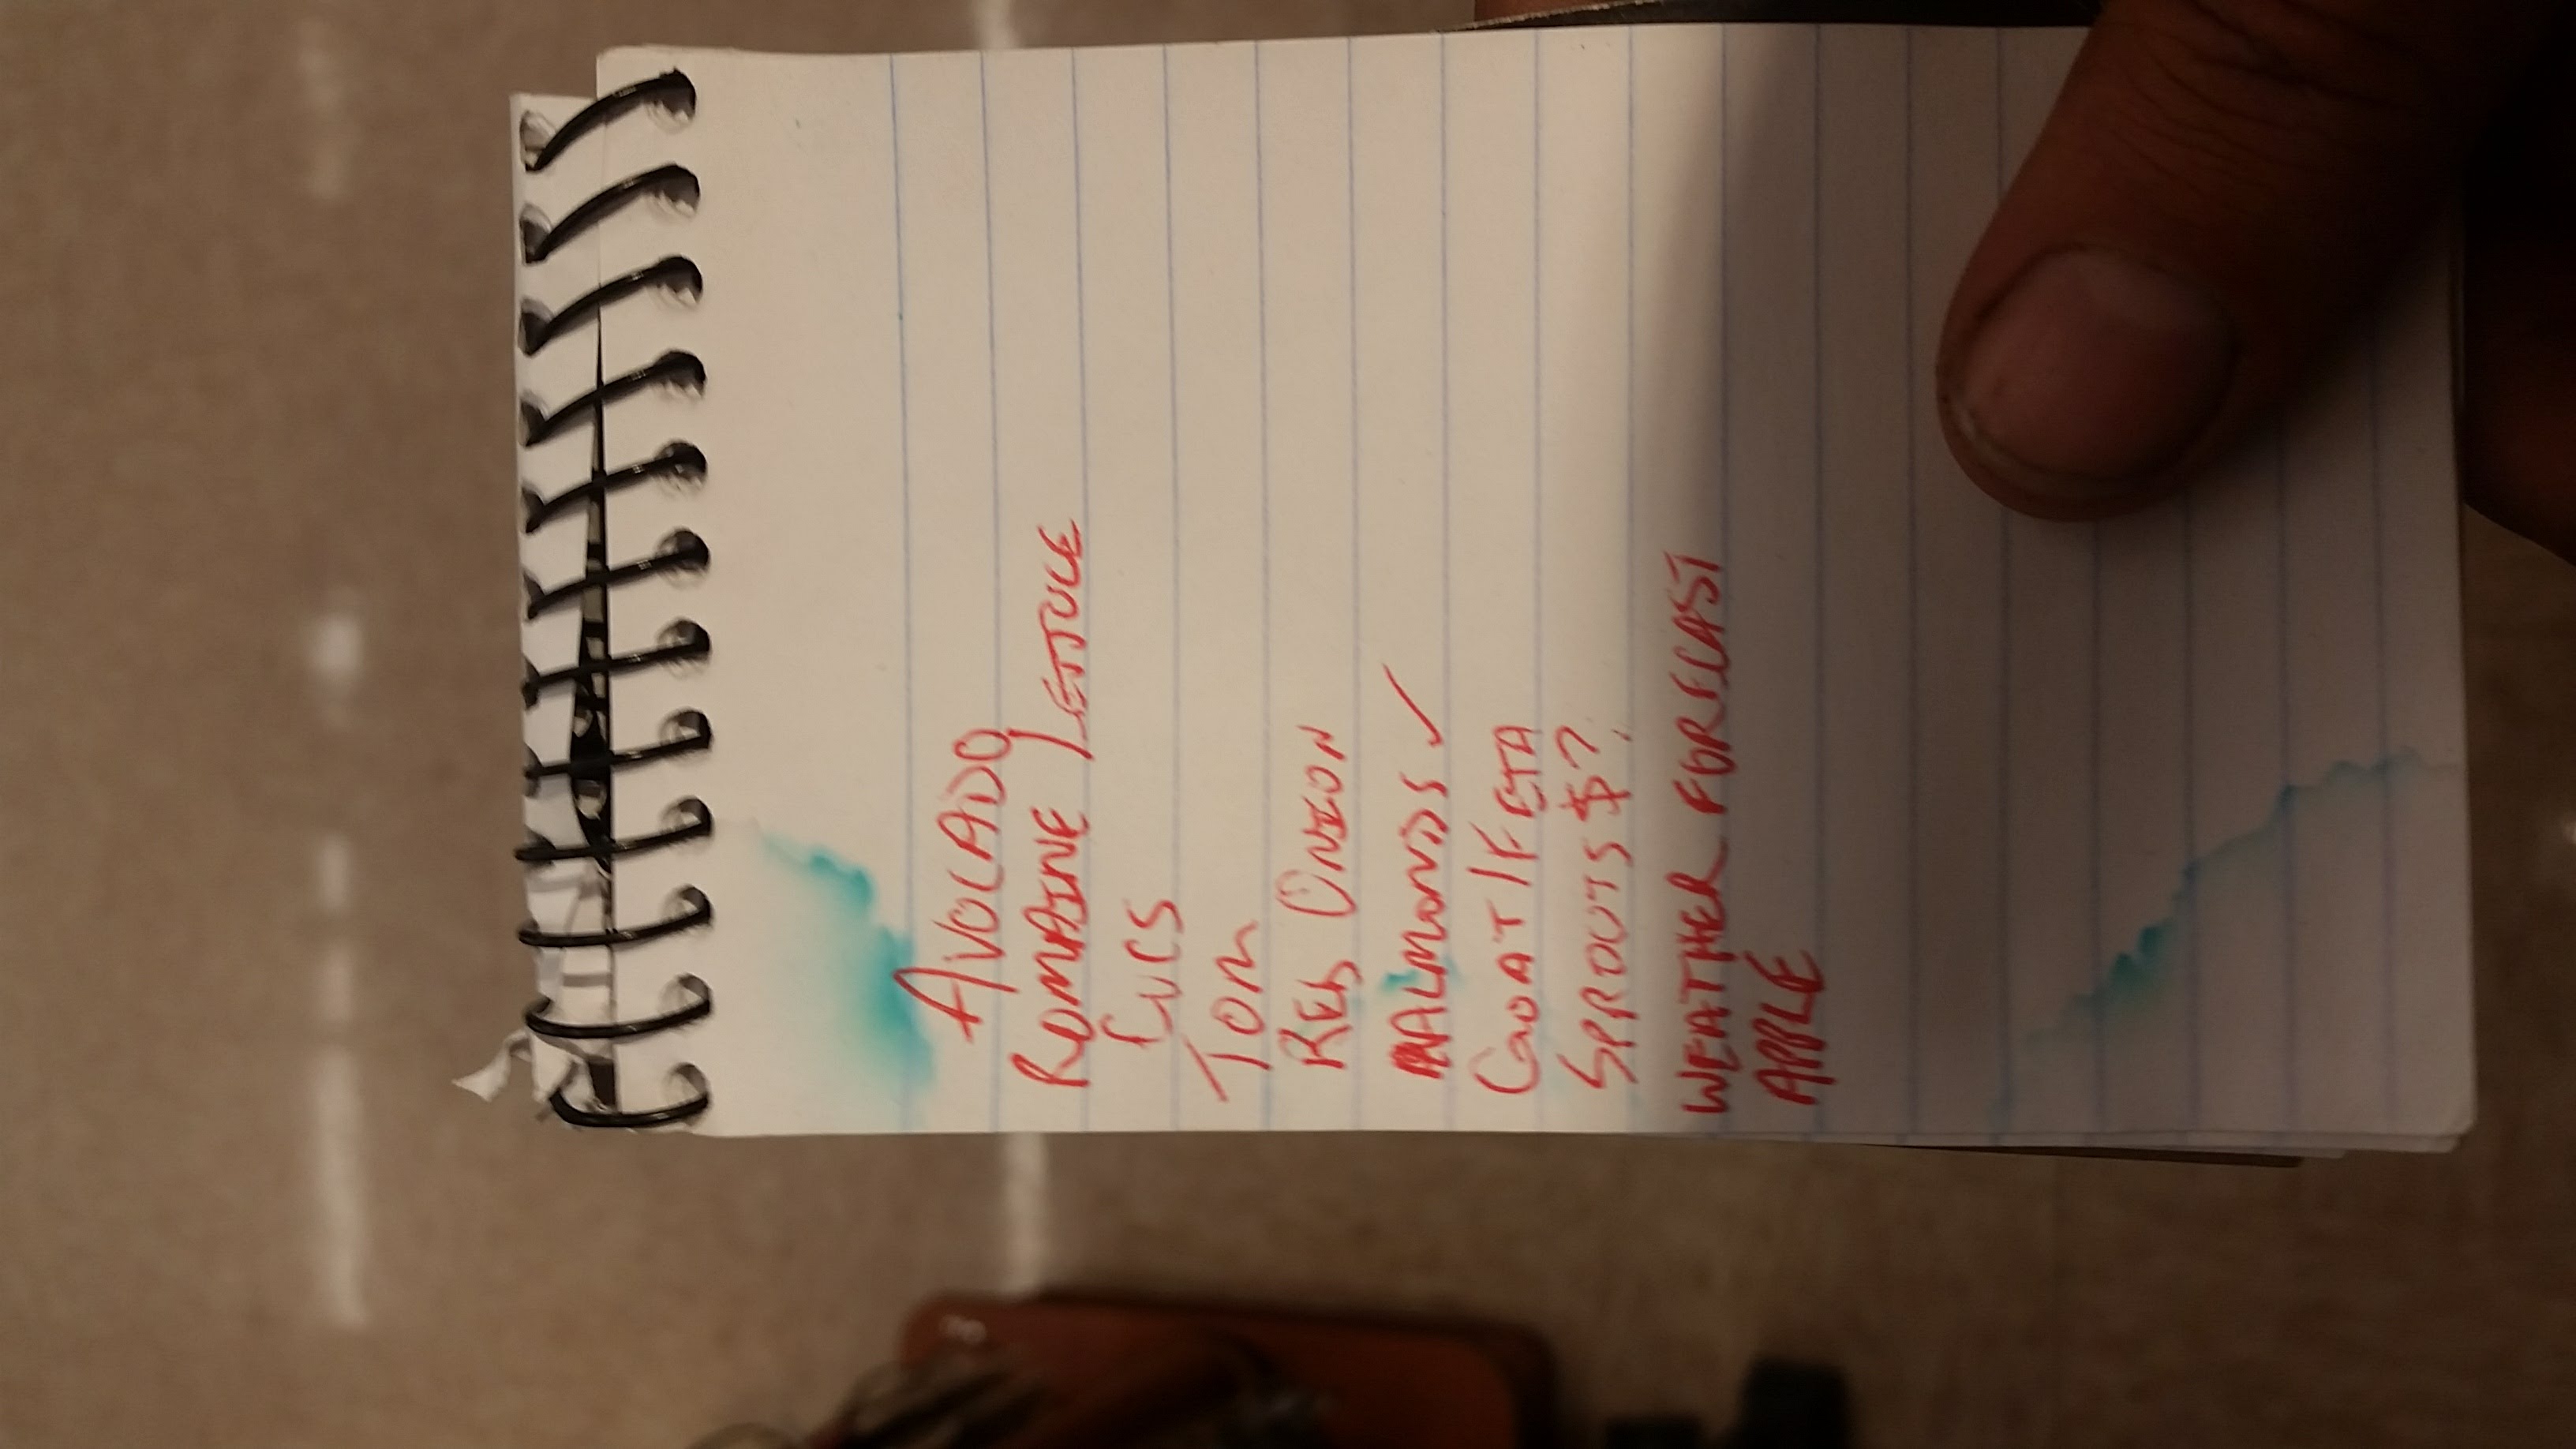 AVOCADO
ROMAINE LETTUCE
CUCS
TOM
RED ONION
ALMONDS ✓
GOAT/FETA
SPROUTS $?
WEATHER FORECAST
APPLE